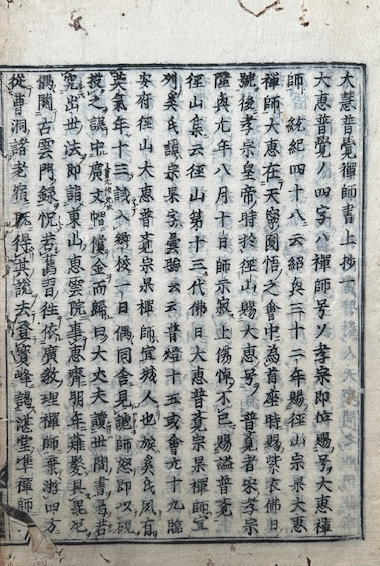 大慧普覺禪師書上抄
大惠普覺ノ四字ハ禪師号ソ孝宗即位賜号大惠禪
師 統紀四十八云紹興三十二年賜徑山宗杲大惠
禪師大惠在天寧圜悟之會中為首座時賜紫衣佛日
號後孝宗皇帝時於徑山賜大惠号 普覺者宋孝宗
隆興元年八月十日師示寂上傷悼不已賜謚普覺
徑山集云徑山第十三代佛日大惠普覺宗杲禪師宣
州奚氏諱宗杲字曇晦云云普燈十五或會元十九臨
安府徑山大惠普覺宗杲禪師宣城人也族奚氏夙有
英氣年十三誌入鄉校一日偶同舍見謔師怒即以硯
投之誤中廣文帽償金而歸曰大丈夫讀世間書曷若
究出世法即詣東山惠雲院事惠齊明年薙髮具毘尼
偶閱古雲門録怳若舊習往依廣教理禪師棄游四方
從曹洞諸老宿既得其説去登寶峰謁湛堂準禪師